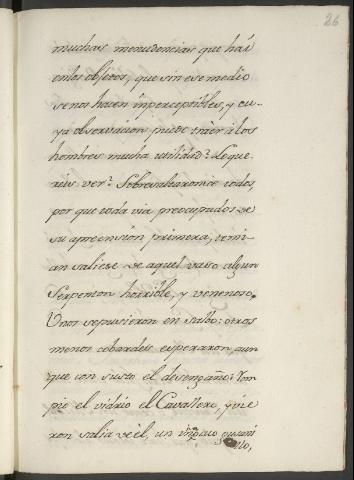 26
muchas menudencias que hai
en los objetos, que sin ese medio
se nos hacen imperceptibles, y cu-
ya observacion puede traèr à los
hombres mucha utilidad? Lo que-
reis ver? Sobresaltaronse todos,
por que toda via preocupados de
su aprension primera, temi-
an saliese de aquel vaso algun
Serpenton horrible, y venenoso.
Unos se pusieron en salvo: otros
menos cobardes esperaron, aun
que con susto el desengaño: Rom-
piò el vidrio el Cavallero, y vie
ron salia de èl, un